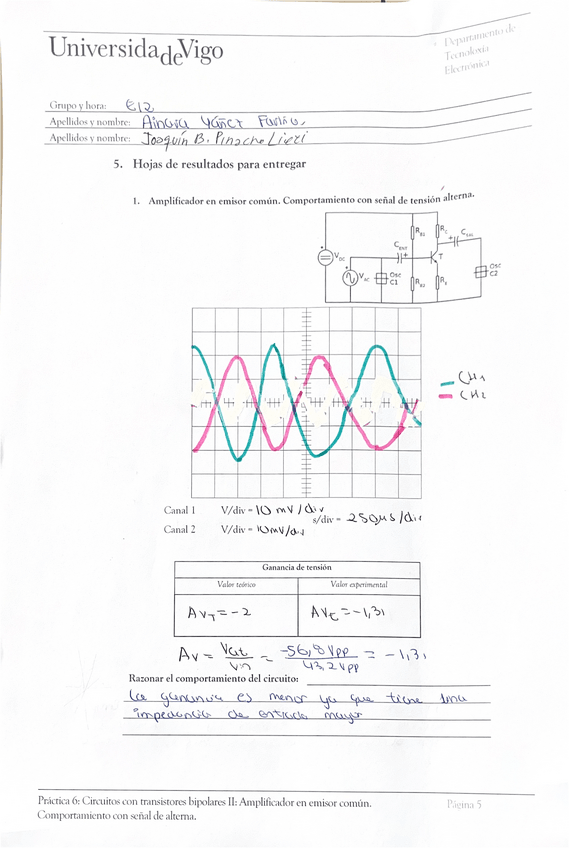 Universidade Vigo
Departamento de
Tecnoloxía
Electrónica
Grupo y hora: E12
Apellidos y nombre: Ainara Yáñez Fariña
Apellidos y nombre: Joaquín B. Pinache Lieri
5. Hojas de resultados para entregar
1. Amplificador en emisor común. Comportamiento con señal de tensión alterna.
RB1
RC
CSAL
CENT
VDC
T
VAC
Osc
C1
RB2
RE
Osc
C2
CH1
CH2
Canal 1 V/div = 10 mV/div
s/div = 250µs/div
Canal 2 V/div = 10mV/div
Ganancia de tensión
Valor teórico Valor experimental
AVT = -2 AVE = -1,31
Av = = -56,8 Vpp / 43,2 Vpp = -1,31
Razonar el comportamiento del circuito:
La ganancia es menor ya que tiene una
impedancia de entrada mayor
Práctica 6: Circuitos con transistores bipolares II: Amplificador en emisor común.
Página 5
Comportamiento con señal de alterna.